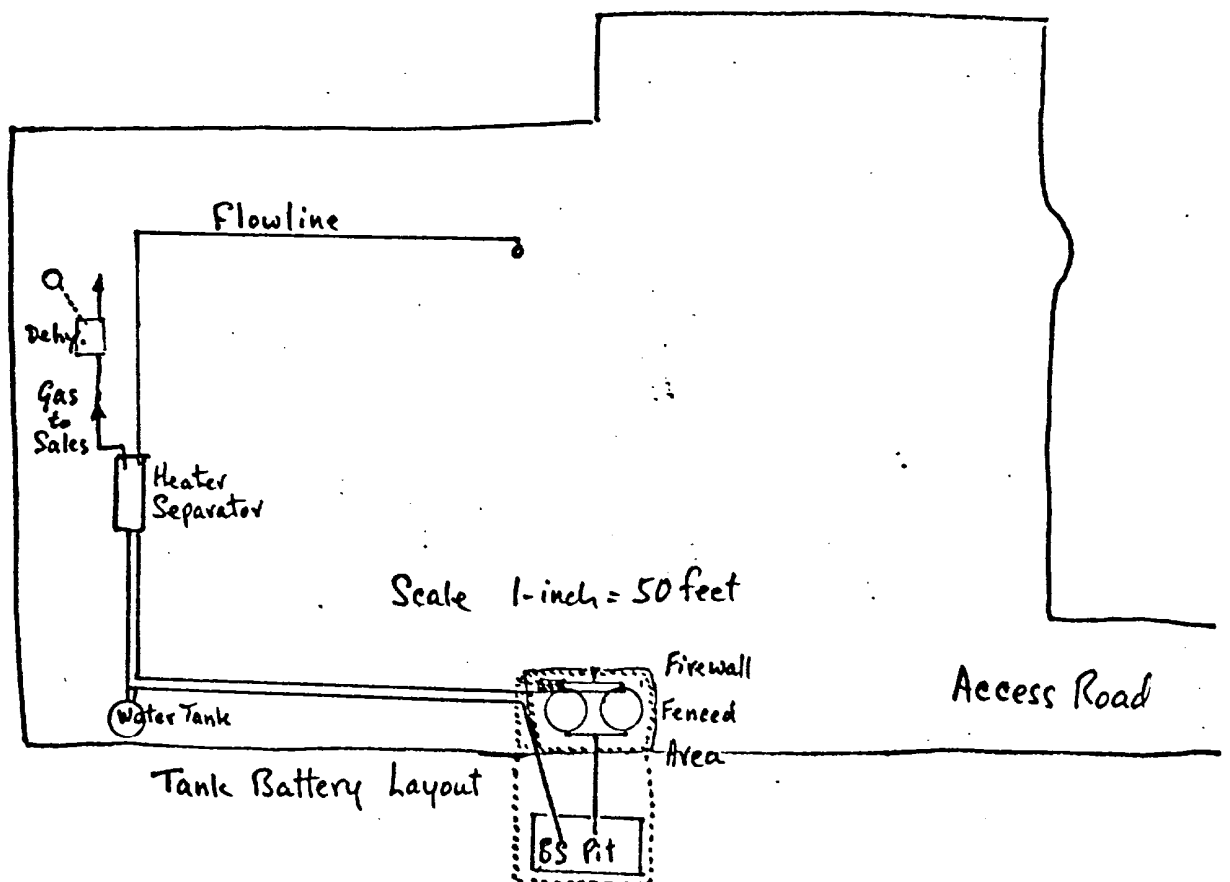 Flowline
Dehy.
Gas
to
Sales
Heater
Separator
Scale 1-inch = 50 feet
Firewall
Fenced
Area
Access Road
Water Tank
Tank Battery Layout
BS Pit